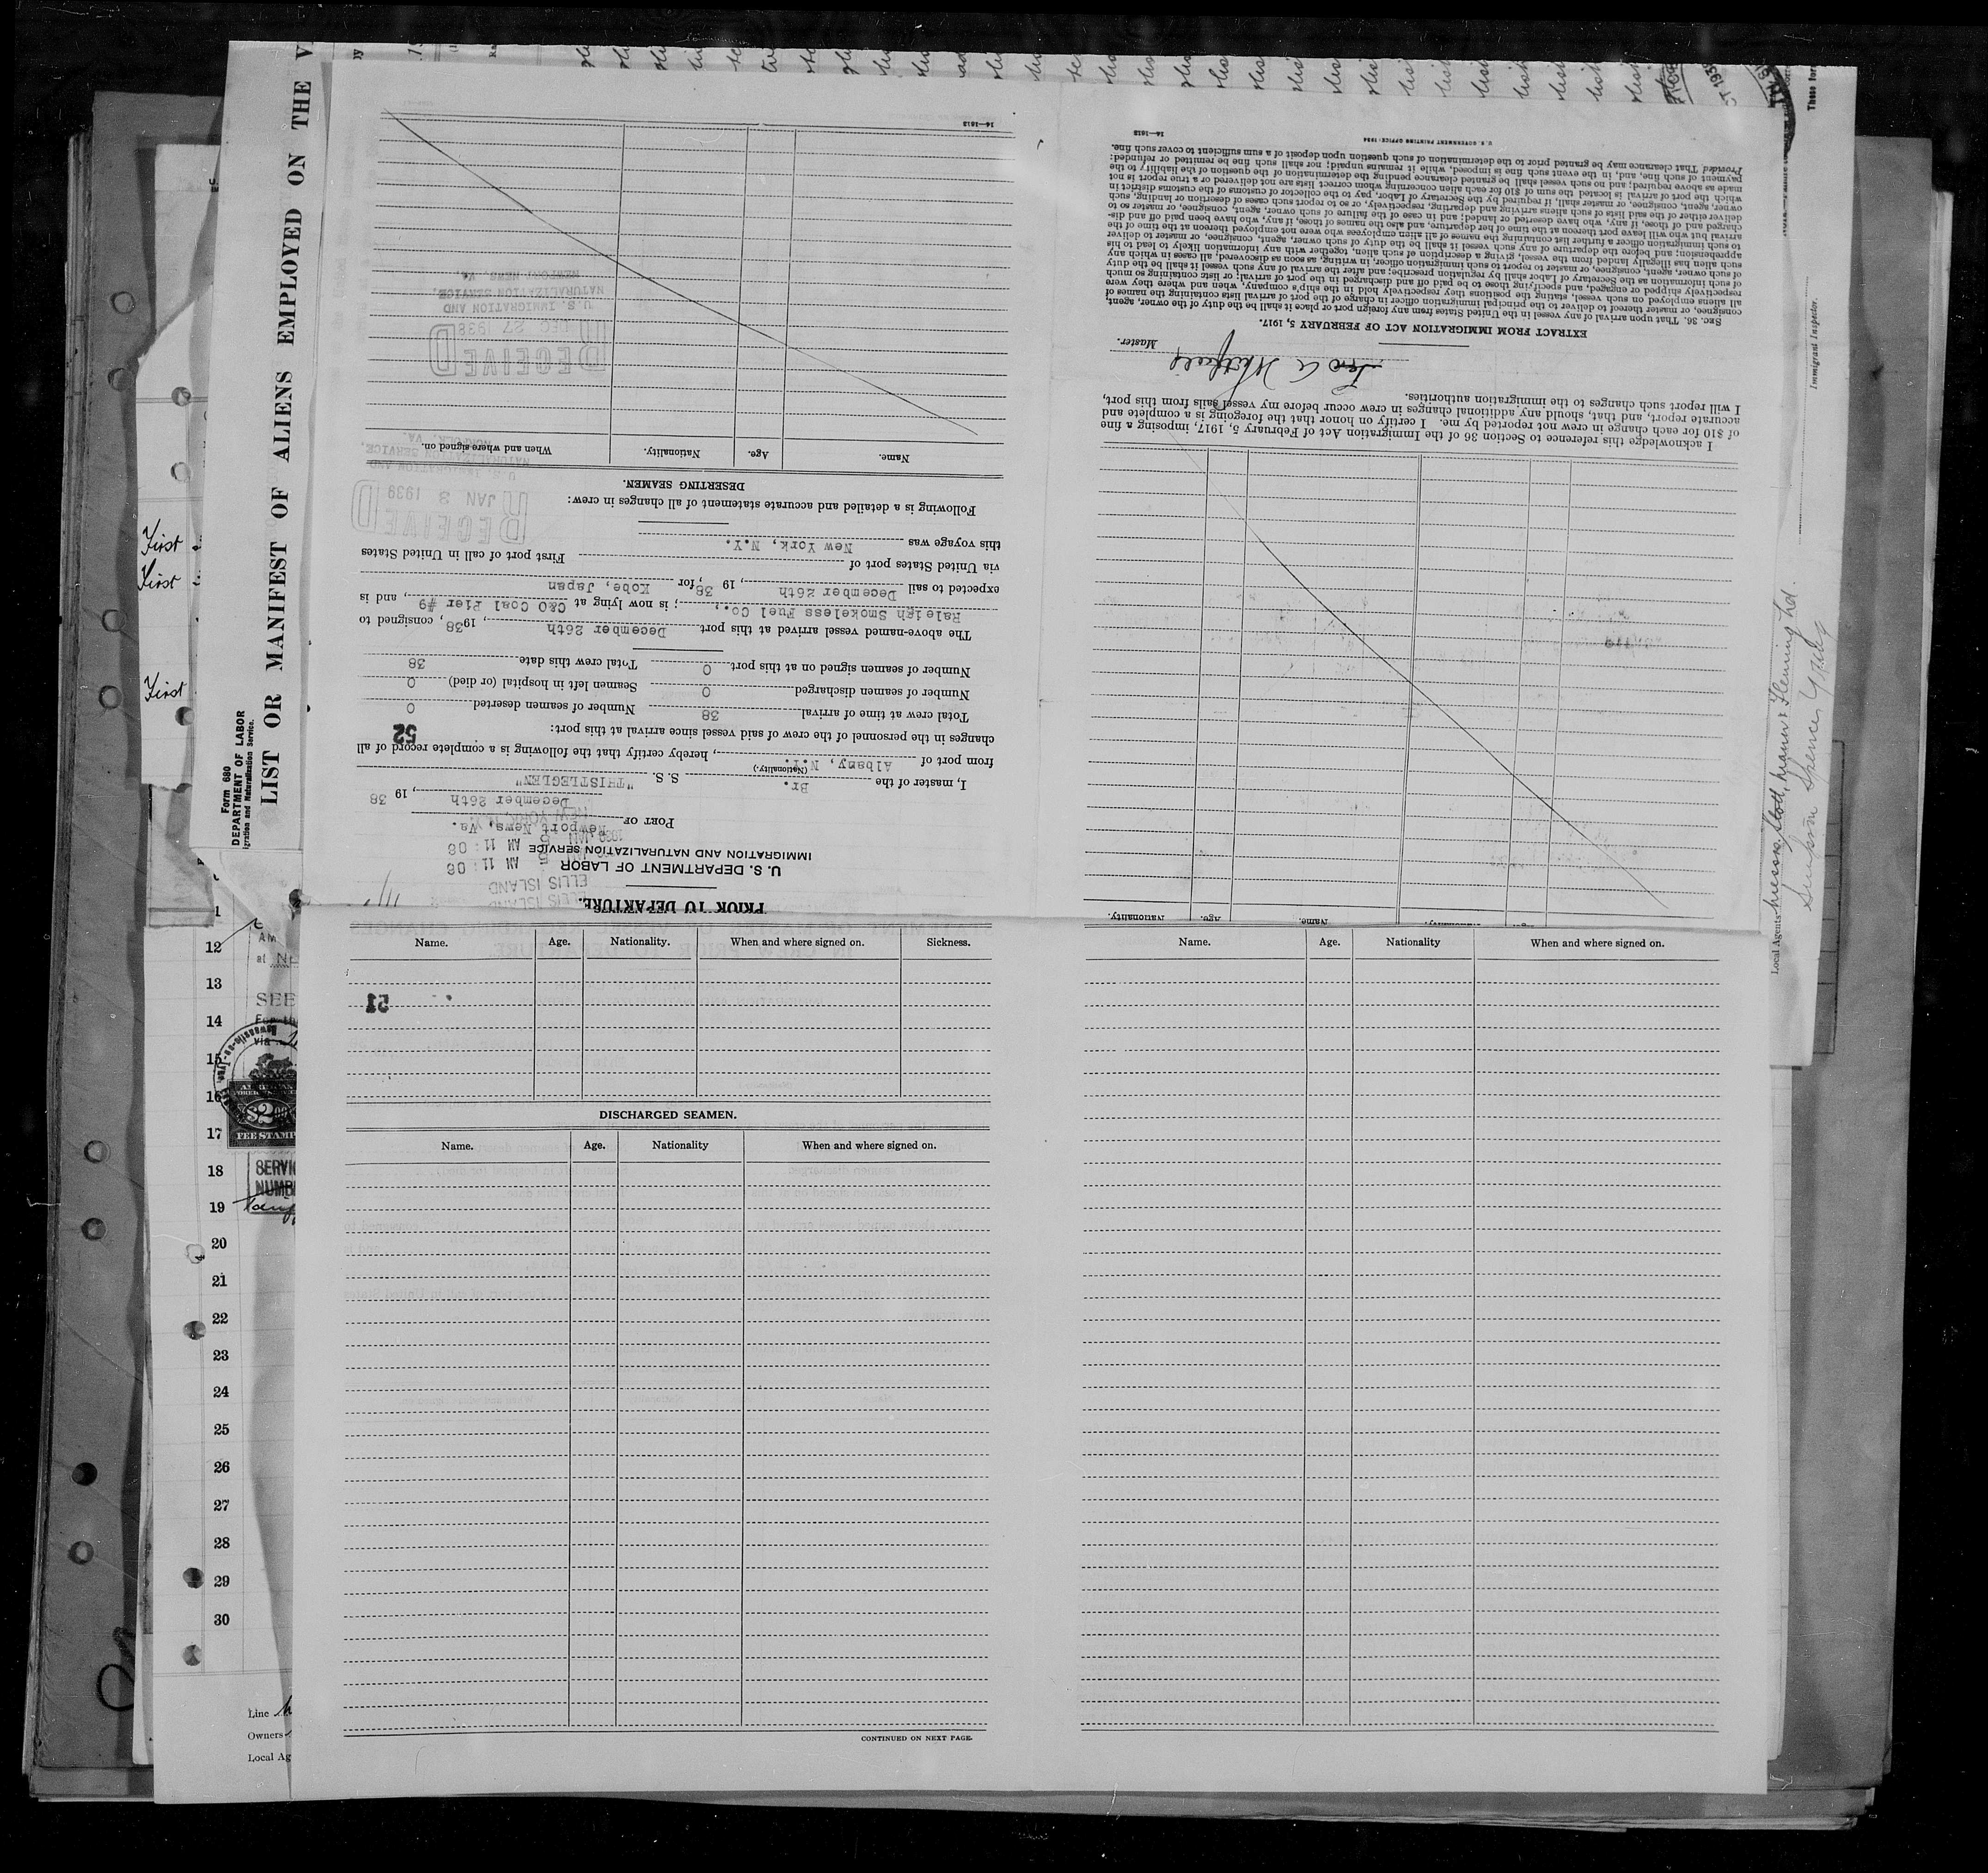 Form 680
DEPARTMENT OF LABOR
igration and Naturalization Service.
LIST OR MANIFEST OF ALIENS EMPLOYED ON THE V
First
First
First
PRIOR TO DEPARTURE.
ELLIS ISLAND
U. S. DEPARTMENT OF LABOR
IMMIGRATION AND NATURALIZATION SERVICE
1939 JAN 5 AM 11:08
PORT OF Newport News, Va.
December 26th, 19 38
I, master of the Br. S. S. "THISTLEGLEN"
(Nationality.)
from port of Albany, N.Y., hereby certify that the following is a complete record of all
changes in the personnel of the crew of said vessel since arrival at this port:
52
Total crew at time of arrival 38 Number of seamen deserted 0
Number of seamen discharged 0 Seamen left in hospital (or died) 0
Number of seamen signed on at this port 0 Total crew this date 38
The above-named vessel arrived at this port December 26th, 1938, consigned to
Raleigh Smokeless Fuel Co.,; is now lying at C&O Coal Pier #9, and is
expected to sail December 26th, 19 38, for Kobe, Japan
via United States port of First port of call in United States
this voyage was New York, N.Y.
RECEIVED
JAN 3 1939
U. S. IMMIGRATION AND
NATURALIZATION SERVICE,
NORFOLK, VA.
Following is a detailed and accurate statement of all changes in crew:
DESERTING SEAMEN.
Name. Age. Nationality. When and where signed on.
RECEIVED
DEC 27 1938
U. S. IMMIGRATION AND
NATURALIZATION SERVICE,
NEWPORT NEWS, VA.
14—1613
Name. Age. Nationality.
I acknowledge this reference to Section 36 of the Immigration Act of February 5, 1917, imposing a fine
of $10 for each change in crew not reported by me. I certify on honor that the foregoing is a complete and
accurate report, and that, should any additional changes in crew occur before my vessel sails from this port,
I will report such changes to the immigration authorities.
Master.
EXTRACT FROM IMMIGRATION ACT OF FEBRUARY 5, 1917.
SEC. 36. That upon arrival of any vessel in the United States from any foreign port or place it shall be the duty of the owner, agent,
consignee, or master thereof to deliver to the principal immigration officer in charge of the port of arrival lists containing the names of
all aliens employed on such vessel, stating the positions they respectively hold in the ship's company, when and where they were
respectively shipped or engaged, and specifying those to be paid off and discharged in the port of arrival; or lists containing so much
of such information as the Secretary of Labor shall by regulation prescribe; and after the arrival of any such vessel it shall be the duty
of such owner, agent, consignee, or master to report to such immigration officer, in writing, as soon as discovered, all cases in which any
such alien has illegally landed from the vessel, giving a description of such alien, together with any information likely to lead to his
apprehension; and before the departure of any such vessel it shall be the duty of such owner, agent, consignee, or master to deliver
to such immigration officer a further list containing the names of all alien employees who were not employed thereon at the time of the
arrival but who will leave port thereon at the time of her departure, and also the names of those, if any, who have been paid off and dis-
charged and of those, if any, who have deserted or landed; and in case of the failure of such owner, agent, consignee, or master so to
deliver either of the said lists of such aliens arriving and departing, respectively, or so to report such cases of desertion or landing, such
owner, agent, consignee, or master, shall, if required by the Secretary of Labor, pay to the collector of customs of the customs district in
which the port of arrival is located the sum of $10 for each alien concerning whom correct lists are not delivered or a true report is not
made as above required; and no such vessel shall be granted clearance pending the determination of the question of the liability to the
payment of such fine, and, in the event such fine is imposed, while it remains unpaid; nor shall such fine be remitted or refunded:
Provided, That clearance may be granted prior to the determination of such question upon deposit of a sum sufficient to cover such fine.
U. S. GOVERNMENT PRINTING OFFICE: 1934
14—1613
Immigrant Inspector.
Local Agents
Name. Age. Nationality. When and where signed on. Sickness.
51
DISCHARGED SEAMEN.
Name. Age. Nationality When and where signed on.
CONTINUED ON NEXT PAGE.
Name. Age. Nationality When and where signed on.
12
13
14
15
16
17
18
19
20
21
22
23
24
25
26
27
28
29
30
SEE
via
$2.00
FEE STAMP
SERVIC
NUMB
Line
Owners
Local Ag